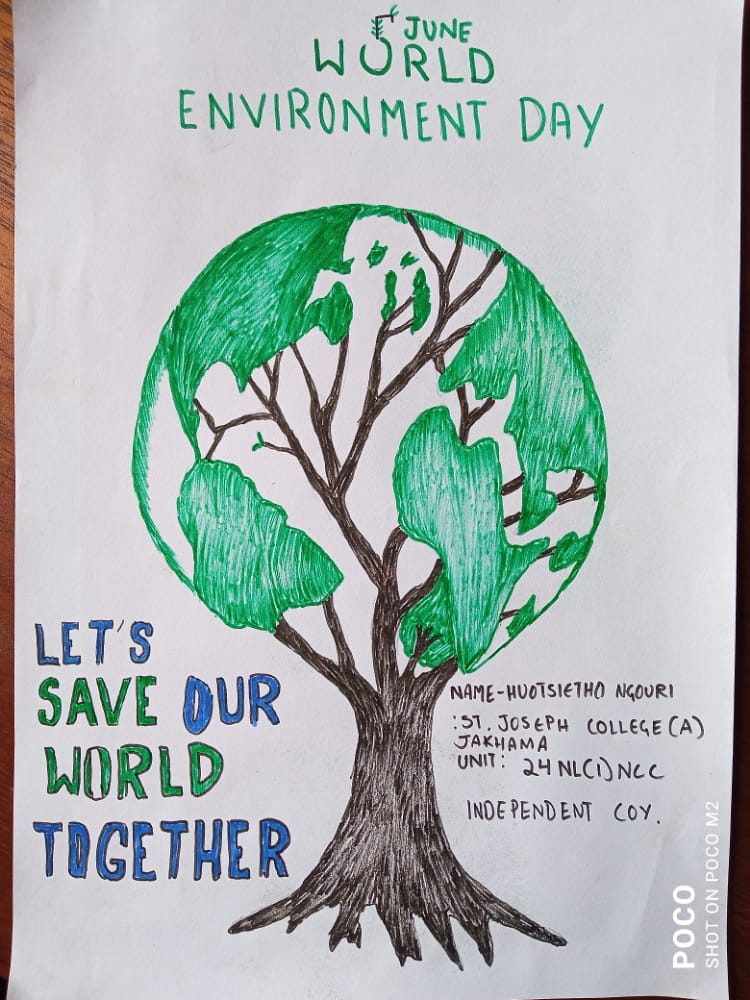 5 JUNE
WORLD
ENVIRONMENT DAY
LET'S
SAVE OUR
WORLD
TOGETHER
NAME-HUOTSIETHO NGOURI
:ST. JOSEPH COLLEGE(A)
JAKHAMA
UNIT: 24NL(I)NCC
INDEPENDENT COY.
POCO
SHOT ON POCO M2